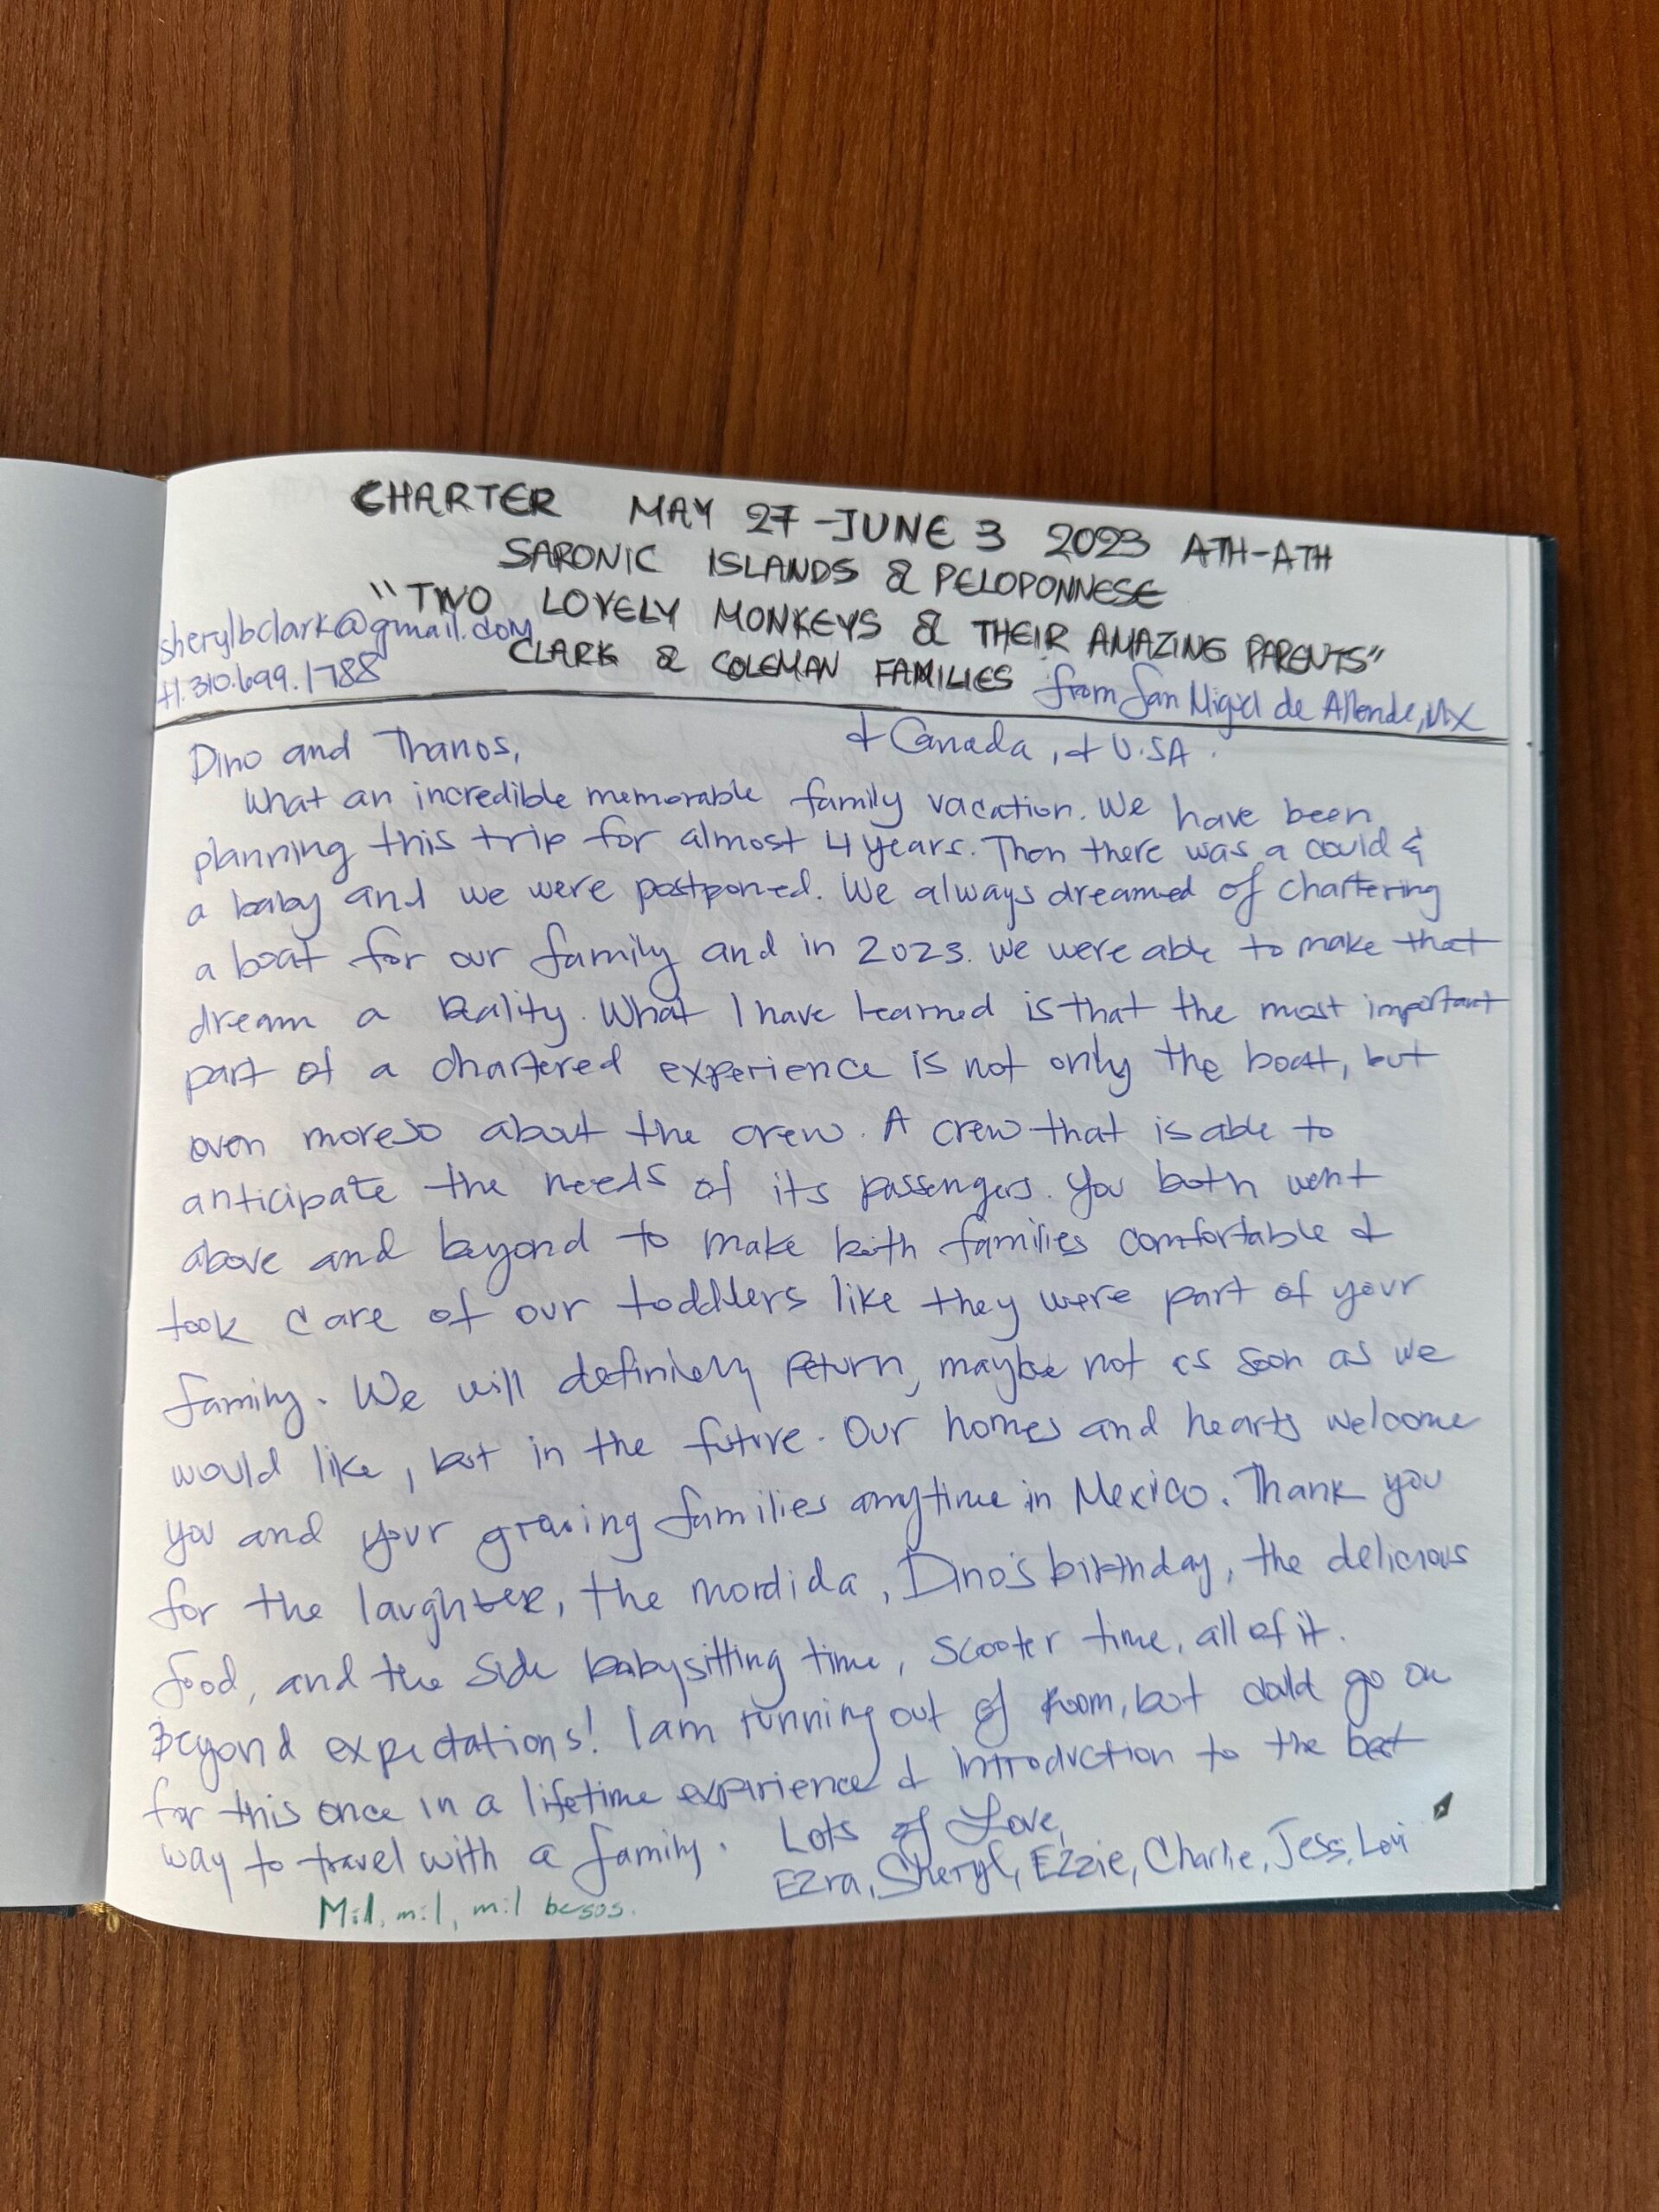 CHARTER MAY 27-JUNE 3 2023 ATH-ATH
SARONIC ISLANDS & PELOPONNESE
"TWO LOVELY MONKEYS & THEIR AMAZING PARENTS"
sherylbclark@gmail.com
CLARK & COLEMAN FAMILIES from San Miguel de Allende, MX
+1.310.699.1788
& Canada, & U.SA.
Dino and Thanos,
What an incredible memorable family vacation. We have been
planning this trip for almost 4 years. Then there was a covid &
a baby and we were postponed. We always dreamed of chartering
a boat for our family and in 2023. we were able to make that
dream a Reality. What I have learned is that the most important
part of a chartered experience is not only the boat, but
even moreso about the crew. A crew that is able to
anticipate the needs of its passengers. You both went
above and beyond to make both families comfortable &
took care of our toddlers like they were part of your
family. We will definitely return, maybe not as soon as we
would like, but in the future. Our homes and hearts welcome
you and your growing families anytime in Mexico. Thank you
for the laughter, the mordida, Dino's birthday, the delicious
food, and the side babysitting time, scooter time, all of it.
Beyond expectations! I am running out of room, but could go on
for this once in a lifetime experience & introduction to the best
way to travel with a family. Lots of Love,
Ezra, Sheryl, Ezzie, Charlie, Jess, Levi
Mil, mil, mil besos.